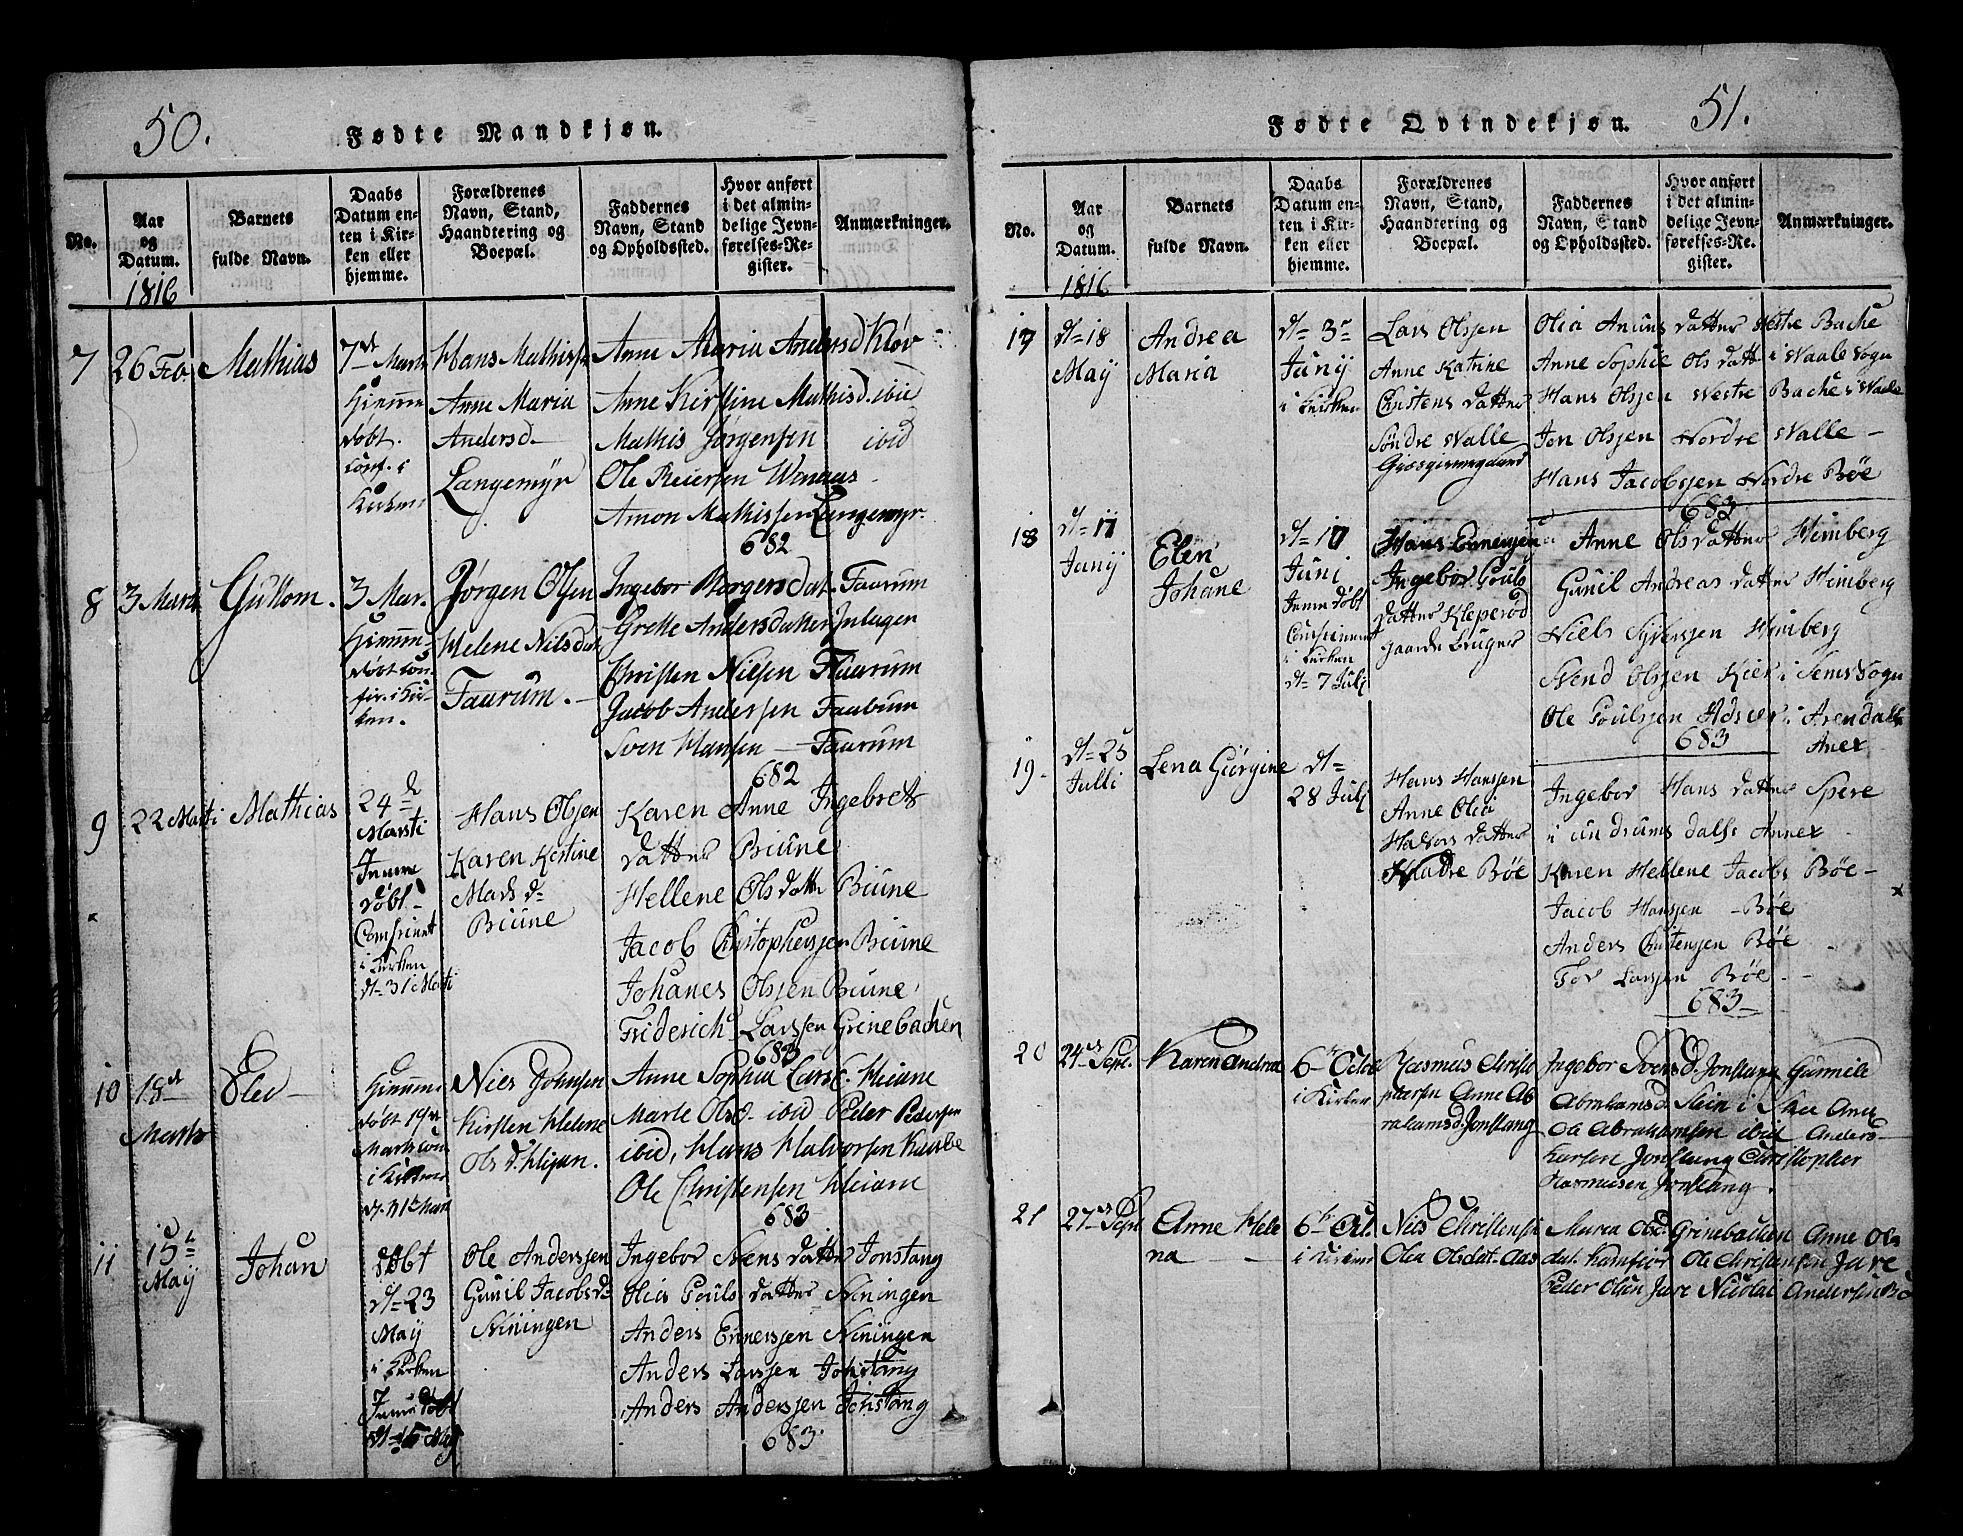 50.
Fødte Mandkjøn.
No.
Aar og Datum.
Barnets fulde Navn.
Daabs Datum enten i Kirken eller hjemme.
Forældrenes Navn, Stand, Haandtering og Boepæl.
Faddernes Navn, Stand og Opholdssted.
Hvor anført i det almindelige Jevnførelses-Register.
Anmærkninger.
1816
7
26 Feb.
Mathias
7de Marts
Hiemme
døbt.
conf. i
Kirken
Hans Mathissen
Anne Maria
Andersd.
Langemyr
Anne Maria Andersd Kløv
Anne Kirstine Mathisd. ibid
Mathis Jørgensen ibid
Ole Reiersen
Amon Mathissen Langemyr.
682
8
3 Marts
Guttom.
3 Mar.
Hiemme
døbt con-
fir. i Kir-
ken.
Jørgen Olsen
Helene Nilsdat
Faurum.
Ingebor Borgersdat. Faurum
Grette Andersdatter
Christen Nilsen Faurum
Jacob Andersen
Sven Hansen Faurum
682
9
22 Marti
Mathias
24de
Marti
døbt
i Kirken
d= 31 Marti
Hans Olsjen
Karen Kestine
Mads d=
Biune
Karen Anne Ingebrets
datter Biune
Hellene Ols datter Biune
Jacob Christophersjen Biune
Johanes Olsjen Biune
Friderich Larssen Grinebachen
683
10
18de
Marts
Elev
Hiemme
døbt 19de
Marts con
i Kirken
Niels Johnsen
Kirsten Helene
Ols d.
Anne Sophia Larsd. Heiane
Marte Olsd. ibid Peder Pedersen
ibid, Hans Halvorsen
Ole Christensen Heiane
683
11
15
Maÿ
Johan
døbt
d= 23
Maÿ
i Kirken
Ole Andersjen
Gunil Jacobs d=
Skiningen
Ingebor Svens datter Jonstang
Olia Pouls datter Skiningen
Anders Ennersjen Skiningen
Anders Larssen Jonstang
Anders Andersjen Jonstang
683.
51.
Fødte Qvindekjøn.
No.
Aar og Datum.
Barnets fulde Navn.
Daabs Datum enten i Kirken eller hjemme.
Forældrenes Navn, Stand, Haandtering og Boepæl.
Faddernes Navn, Stand og Opholdssted.
Hvor anført i det almindelige Jevnførelses-Register.
Anmærkninger.
1816
17
d= 18
Maÿ
Andrea
Maria
d= 3
Junÿ
i Kirken
Lars Olsjen
Anne Katrine
Christens datter
Søndre Walle
Olia Anuns datter Westre Bache
Anne Sophie Ols datt i Waale Sogn
Hans Olsjen Westre Bache i Walle
Jon Olsjen Nordre Walle
Hans Jacobsjen Nordre Bøe
683
18
d= 11
Junÿ
Elen
Johane
d= 17
Juni
i Kirken
d= 7 Juli
Hans Ennersjen
Ingebor Pouls
datter Kleperød
gaardbruger
Anne Ols datter Himberg
Gunil Andreas datter Himberg
Niels Syversjen Himberg
Svend Olsjen Kier i Sems Sogn
Ole Poulsjen i Arendals
Anex
683
19
d= 25
Julli
Lena Giørgine
d=
28 Juli
Hans Hansjen
Anne Olia
Halvors datter
Bøe
Ingebor Hans datter
i undrums dalls Annex
Karen Hellene Jacobs Bøe
Jacob Hansjen Bøe
Anders Christensjen Bøe
Tor Larsjen Bøe
683
20
24de Sept.
Karen Andrea
6te Octob
i Kirken
Rasmus Christo
phersen Anne Ab
rahamsd. Jonstang
Ingebor Svensd. Jonstang Gunnild
Abrahamsd. Stein i Skee Anex
Ola Abrahamsen ibid Anders
Larsen Jonstang Christopher
Rasmusen Jonstang.
21
27de Sept
Anne Hele
na
6te Oct.
i Kirken
Niels Christensen
Olia Olsdat. Aas
Maria Olsd. Grinebacken Anne Ols
dat. Ole Christiansen Jare
Peder Olsen Jare Nicolai Andersen Bø